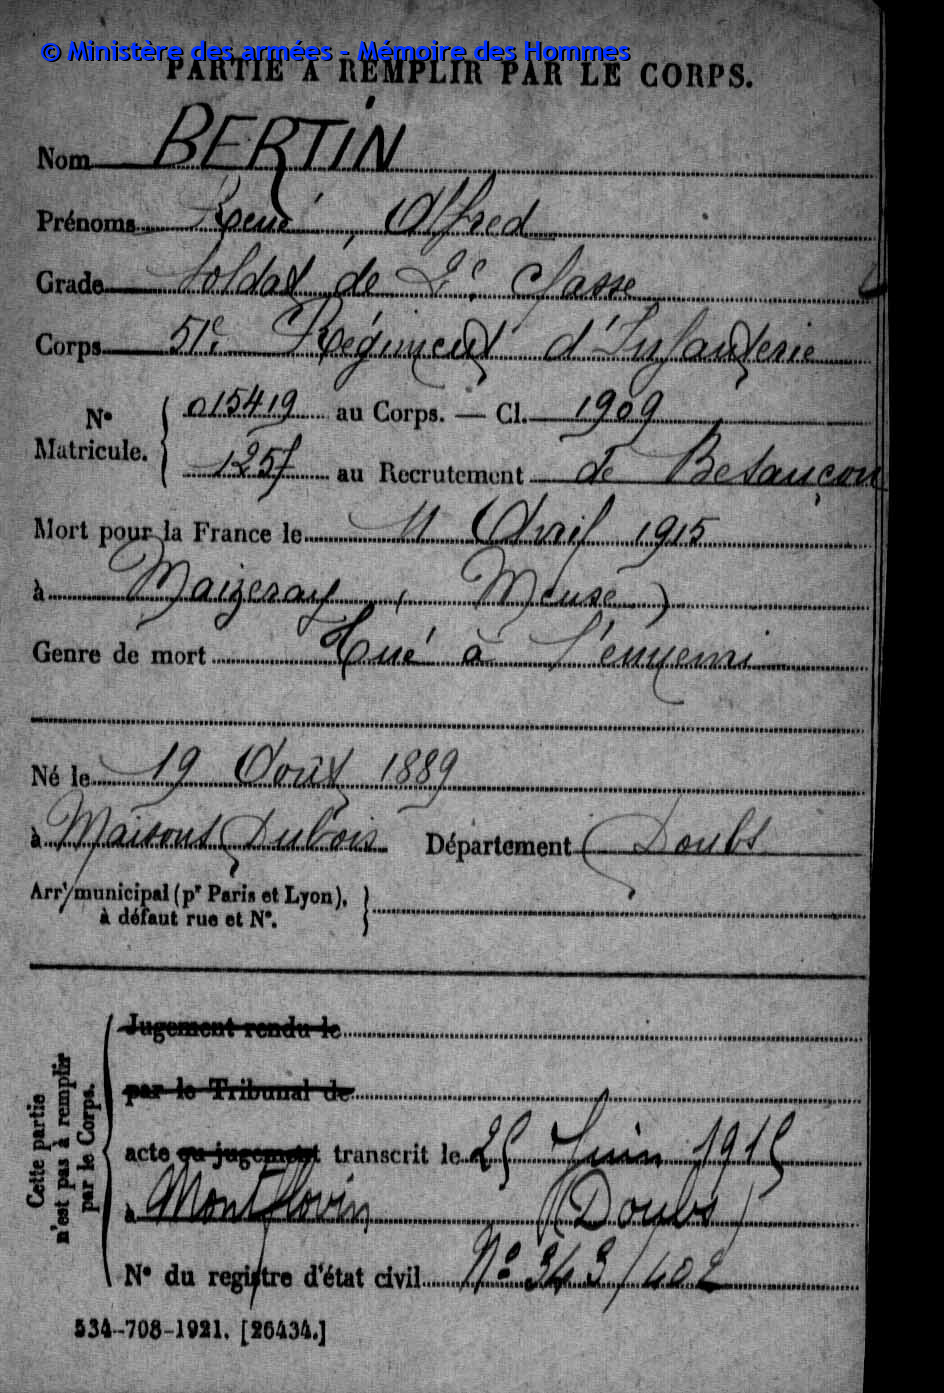 © Ministère des armées - Mémoire des Hommes
PARTIE A REMPLIR PAR LE CORPS.
Nom BERTIN
Prénoms René, Alfred
Grade Soldat de 2e classe
Corps 51e Régiment d'Infanterie
N° Matricule. 015419 au Corps. — Cl. 1909
1257 au Recrutement de Besançon
Mort pour la France le 11 Avril 1915
à Maizeray (Meuse)
Genre de mort Tué à l'ennemi
Né le 19 Août 1889
à Maisons Dubois Département Doubs
Arrt municipal (pr Paris et Lyon),
à défaut rue et N°.
Cette partie
n'est pas à remplir
par le Corps.
Jugement rendu le
par le Tribunal de
acte ou jugement transcrit le 25 Juin 1915
à Montflovin (Doubs)
N° du registre d'état civil N° 343/402
534-708-1921. [26434.]